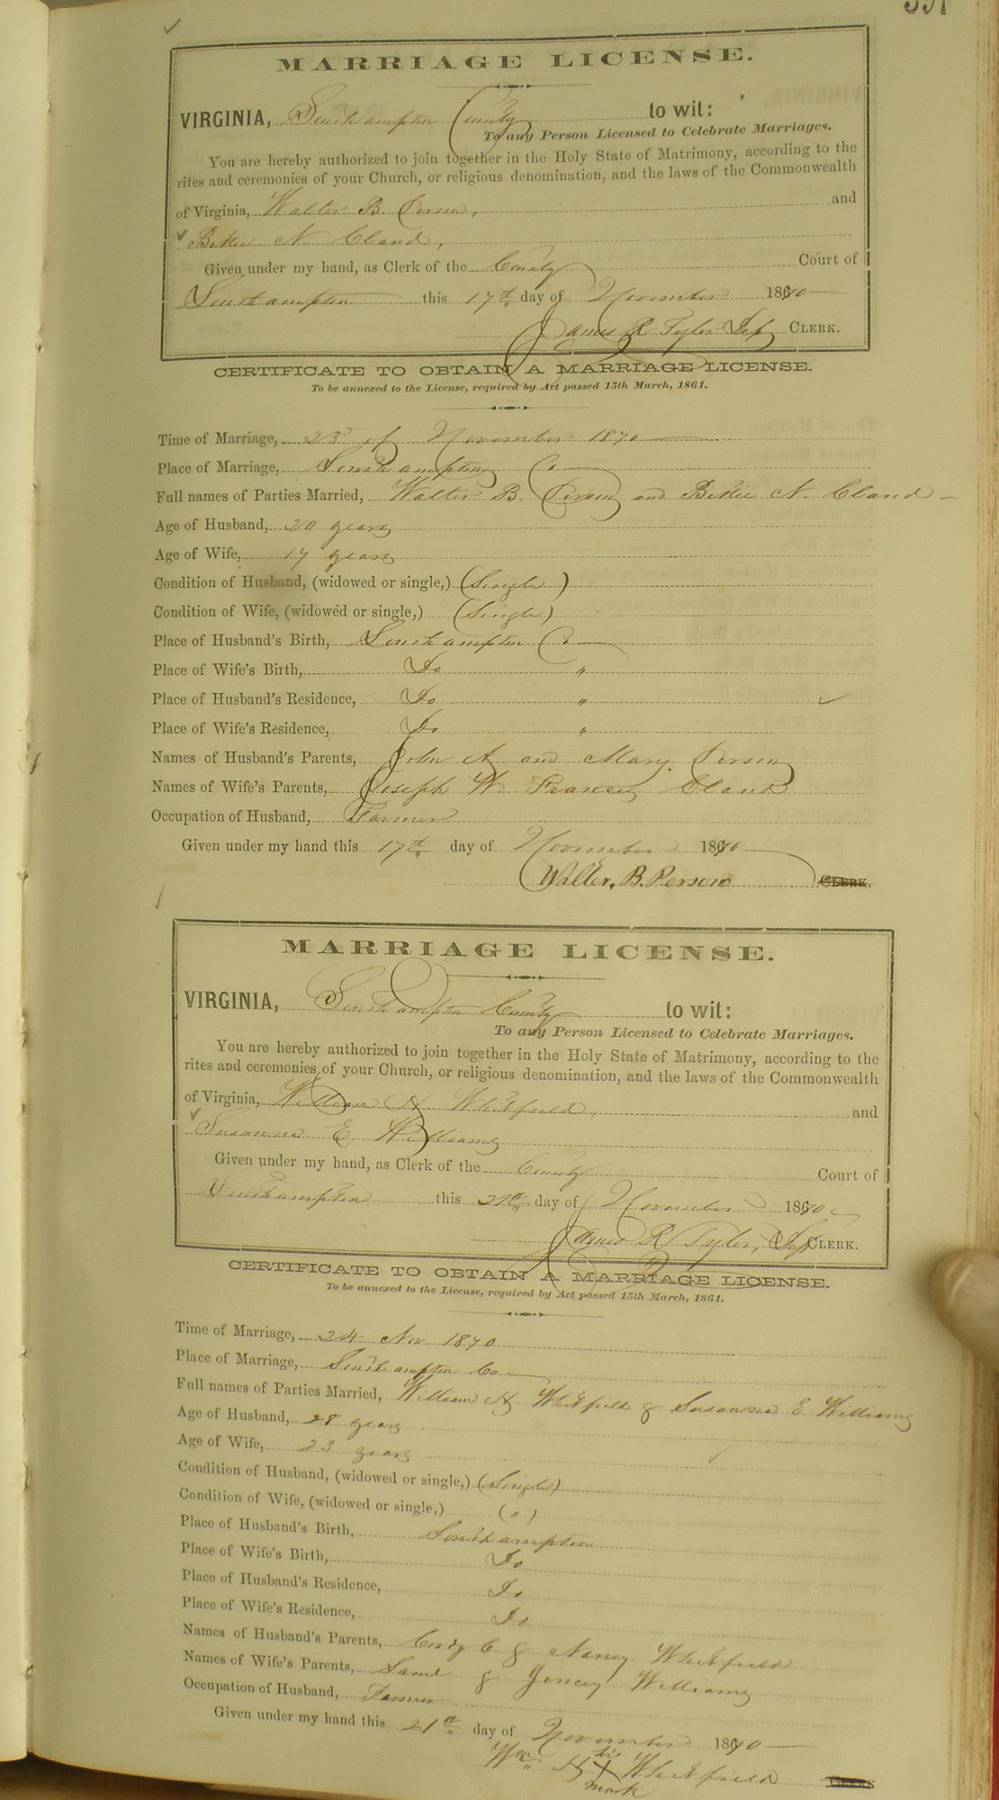 MARRIAGE LICENSE.
VIRGINIA, Southampton County to wit:
To any Person Licensed to Celebrate Marriages.
You are hereby authorized to join together in the Holy State of Matrimony, according to the
rites and ceremonies of your Church, or religious denomination, and the laws of the Commonwealth
of Virginia, Walter B. Person, and
N.
Given under my hand, as Clerk of the County Court of
Southampton this 17th day of November 1870
James R Tyler Dep CLERK.
CERTIFICATE TO OBTAIN A MARRIAGE LICENSE.
To be annexed to the License, required by Act passed 15th March, 1861.
Time of Marriage, 23d of November 1870
Place of Marriage, Southampton Co
Full names of Parties Married, Walter B. Person and N.
Age of Husband, 20 years
Age of Wife, years
Condition of Husband, (widowed or single,) (Single)
Condition of Wife, (widowed or single,) (Single)
Place of Husband's Birth, Southampton Co
Place of Wife's Birth, Do "
Place of Husband's Residence, Do "
Place of Wife's Residence, Do "
Names of Husband's Parents, John A. and Mary Person
Names of Wife's Parents, Joseph W. Frances
Occupation of Husband, Farmer
Given under my hand this 17th day of November 1870
Walter. B. Person CLERK.
MARRIAGE LICENSE.
VIRGINIA, Southampton County to wit:
To any Person Licensed to Celebrate Marriages.
You are hereby authorized to join together in the Holy State of Matrimony, according to the
rites and ceremonies of your Church, or religious denomination, and the laws of the Commonwealth
of Virginia, William H Whitfield, and
Susanna E Williams
Given under my hand, as Clerk of the County Court of
Southampton this 21st day of November 1870
James R Tyler, Dep CLERK.
CERTIFICATE TO OBTAIN A MARRIAGE LICENSE.
To be annexed to the License, required by Act passed 15th March, 1861.
Time of Marriage, 24 Nov 1870
Place of Marriage, Southampton Co.
Full names of Parties Married, William H Whitfield & Susanna E Williams
Age of Husband, 28 years
Age of Wife, 23 years
Condition of Husband, (widowed or single,) (Single)
Condition of Wife, (widowed or single,) (")
Place of Husband's Birth, Southampton
Place of Wife's Birth, Do
Place of Husband's Residence, Do
Place of Wife's Residence, Do
Names of Husband's Parents, C & Nancy Whitfield
Names of Wife's Parents, & Williams
Occupation of Husband, Farmer
Given under my hand this 21st day of November 1870
his
Wm H X Whitfield CLERK
mark